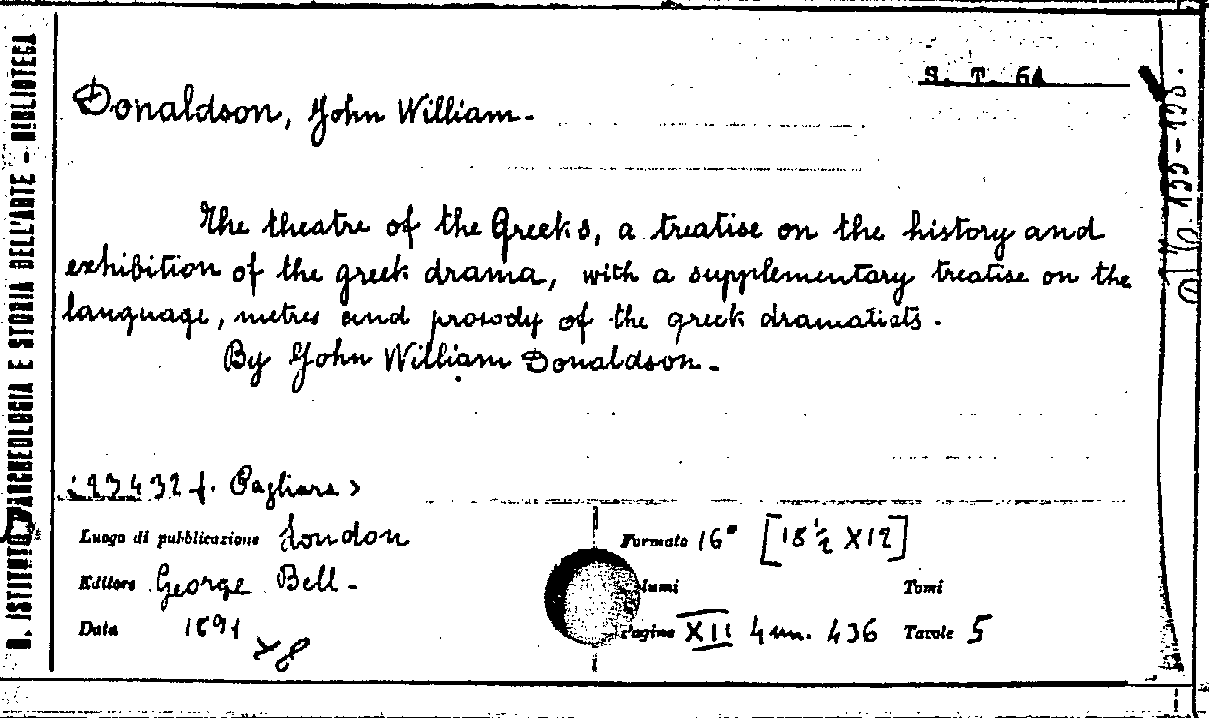 R. ISTITUTO D'ARCHEOLOGIA E STORIA DELL'ARTE - BIBLIOTECA
S. T. 64
Donaldson, John William.
The theatre of the Greeks, a treatise on the history and
exhibition of the greek drama, with a supplementary treatise on the
language, metres and prosody of the greek dramatists.
By John William Donaldson.
f. Pagliara >
Luogo di pubblicazione London
Formato 16° [18 ½ X 12]
Editore George Bell -
lumi
Tomi
Data 1891
Pagine XII 4 un. 436
Tavole 5